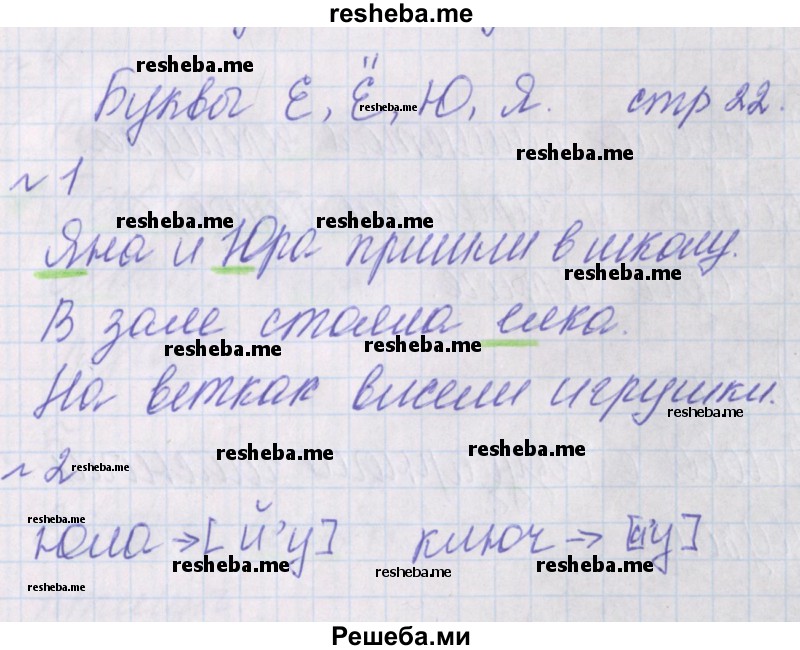 resheba.me
resheba.me
Буквы Е, Ё, Ю, Я. стр 22.
resheba.me
resheba.me
№ 1
resheba.me resheba.me
Яна и Юра пришли в школу.
resheba.me
В зале стояла елка.
resheba.me resheba.me
На ветках висели игрушки.
resheba.me
resheba.me resheba.me
№ 2 resheba.me
resheba.me
юла → [й'у] ключ → [л'у]
resheba.me resheba.me resheba.me
resheba.me
Решеба.ми